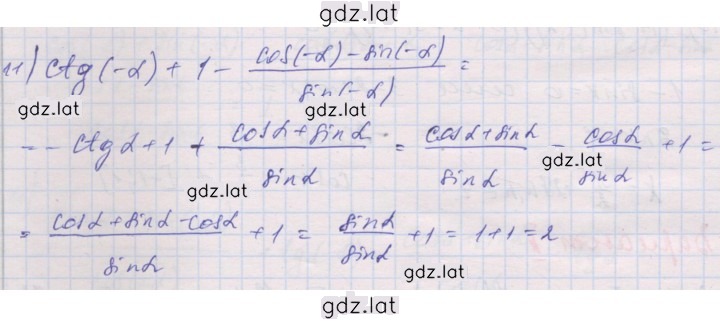 gdz.lat
11) ctg(-α) + 1 - (cos(-α) - sin(-α))/sin(-α) =
gdz.lat gdz.lat
= - ctgα + 1 + (cosα + sinα)/sinα = (cosα + sinα)/sinα - cosα/sinα + 1 =
gdz.lat gdz.lat
= (cosα + sinα - cosα)/sinα + 1 = sinα/sinα + 1 = 1 + 1 = 2
gdz.lat
gdz.lat